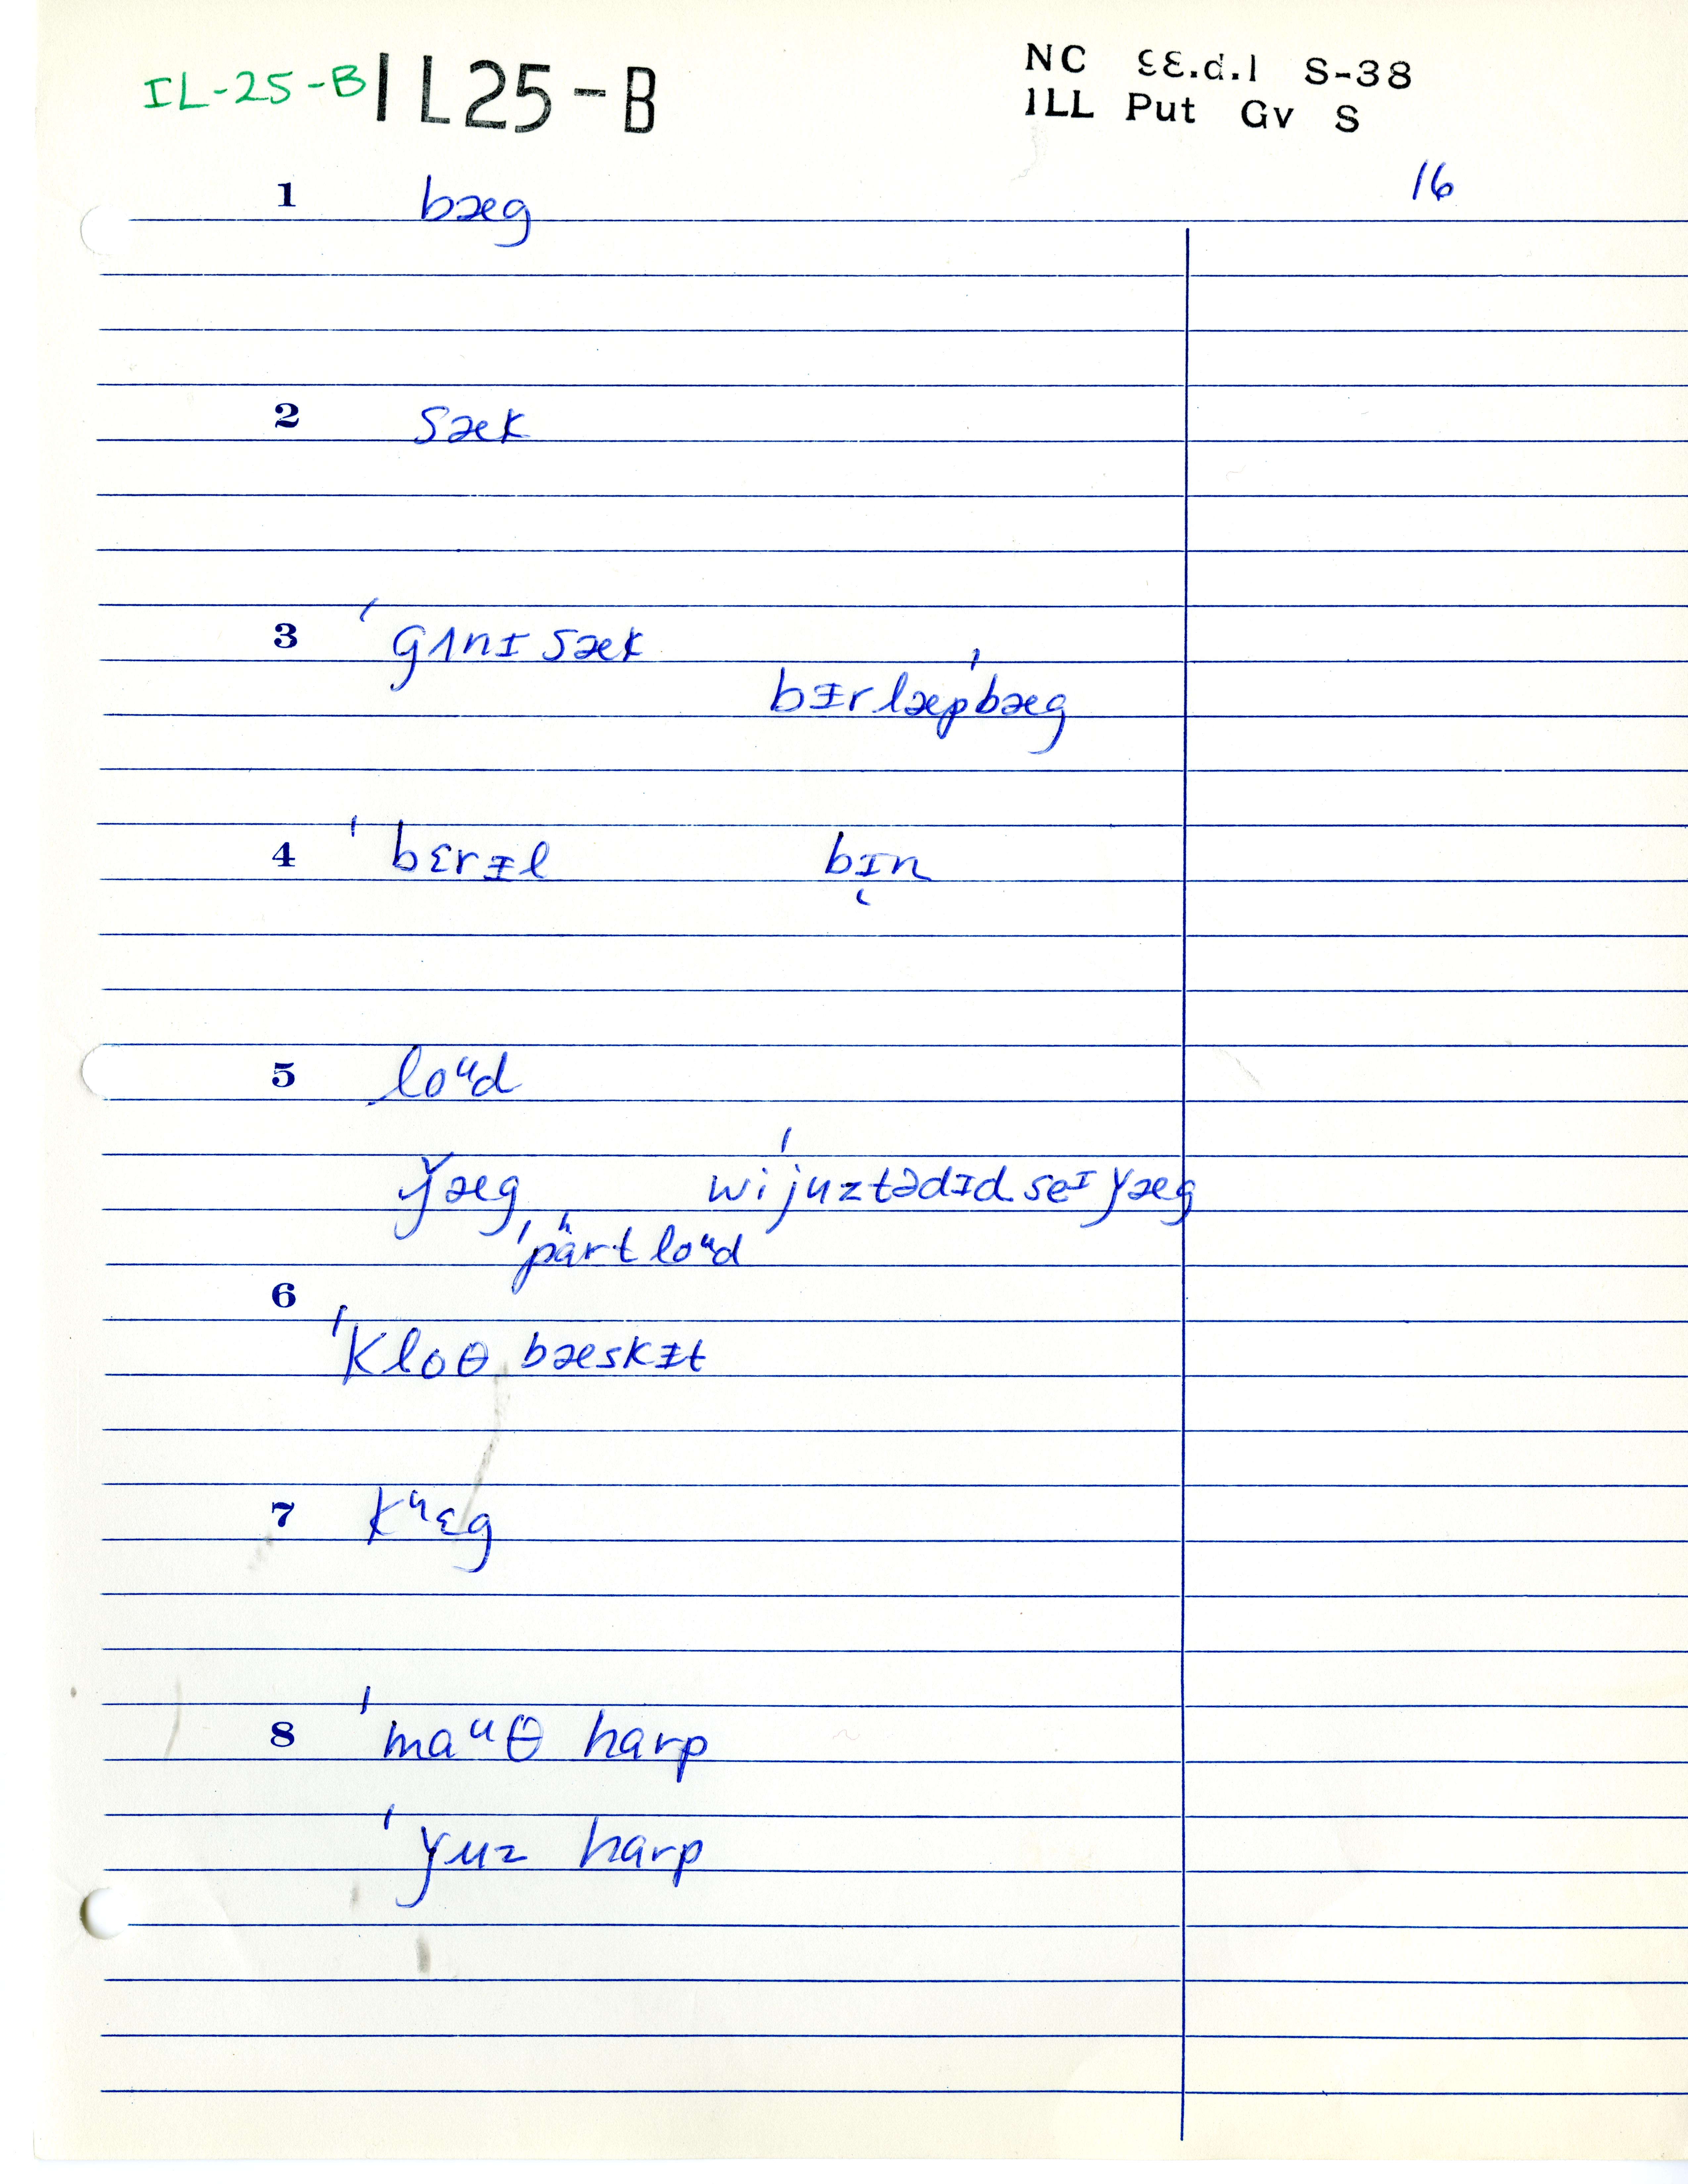 IL-25-B IL25-B
NC 33.d.1 S-38
ILL Put Gv S
16
1 bæg
2 sæk
3 ˈgʌnɪ sæk
bɪrlæpˈbæg
4 ˈbɛrɪl bɪ̜n
5 loᵘd
ǰæg wiˈjuztədɪd seᴵ ǰæg
ˈpʰart loᵘd
6
ˈkloθ bæskɪt
7 kʰɛg
8 ˈmaᵘθ harp
ˈǰuz harp